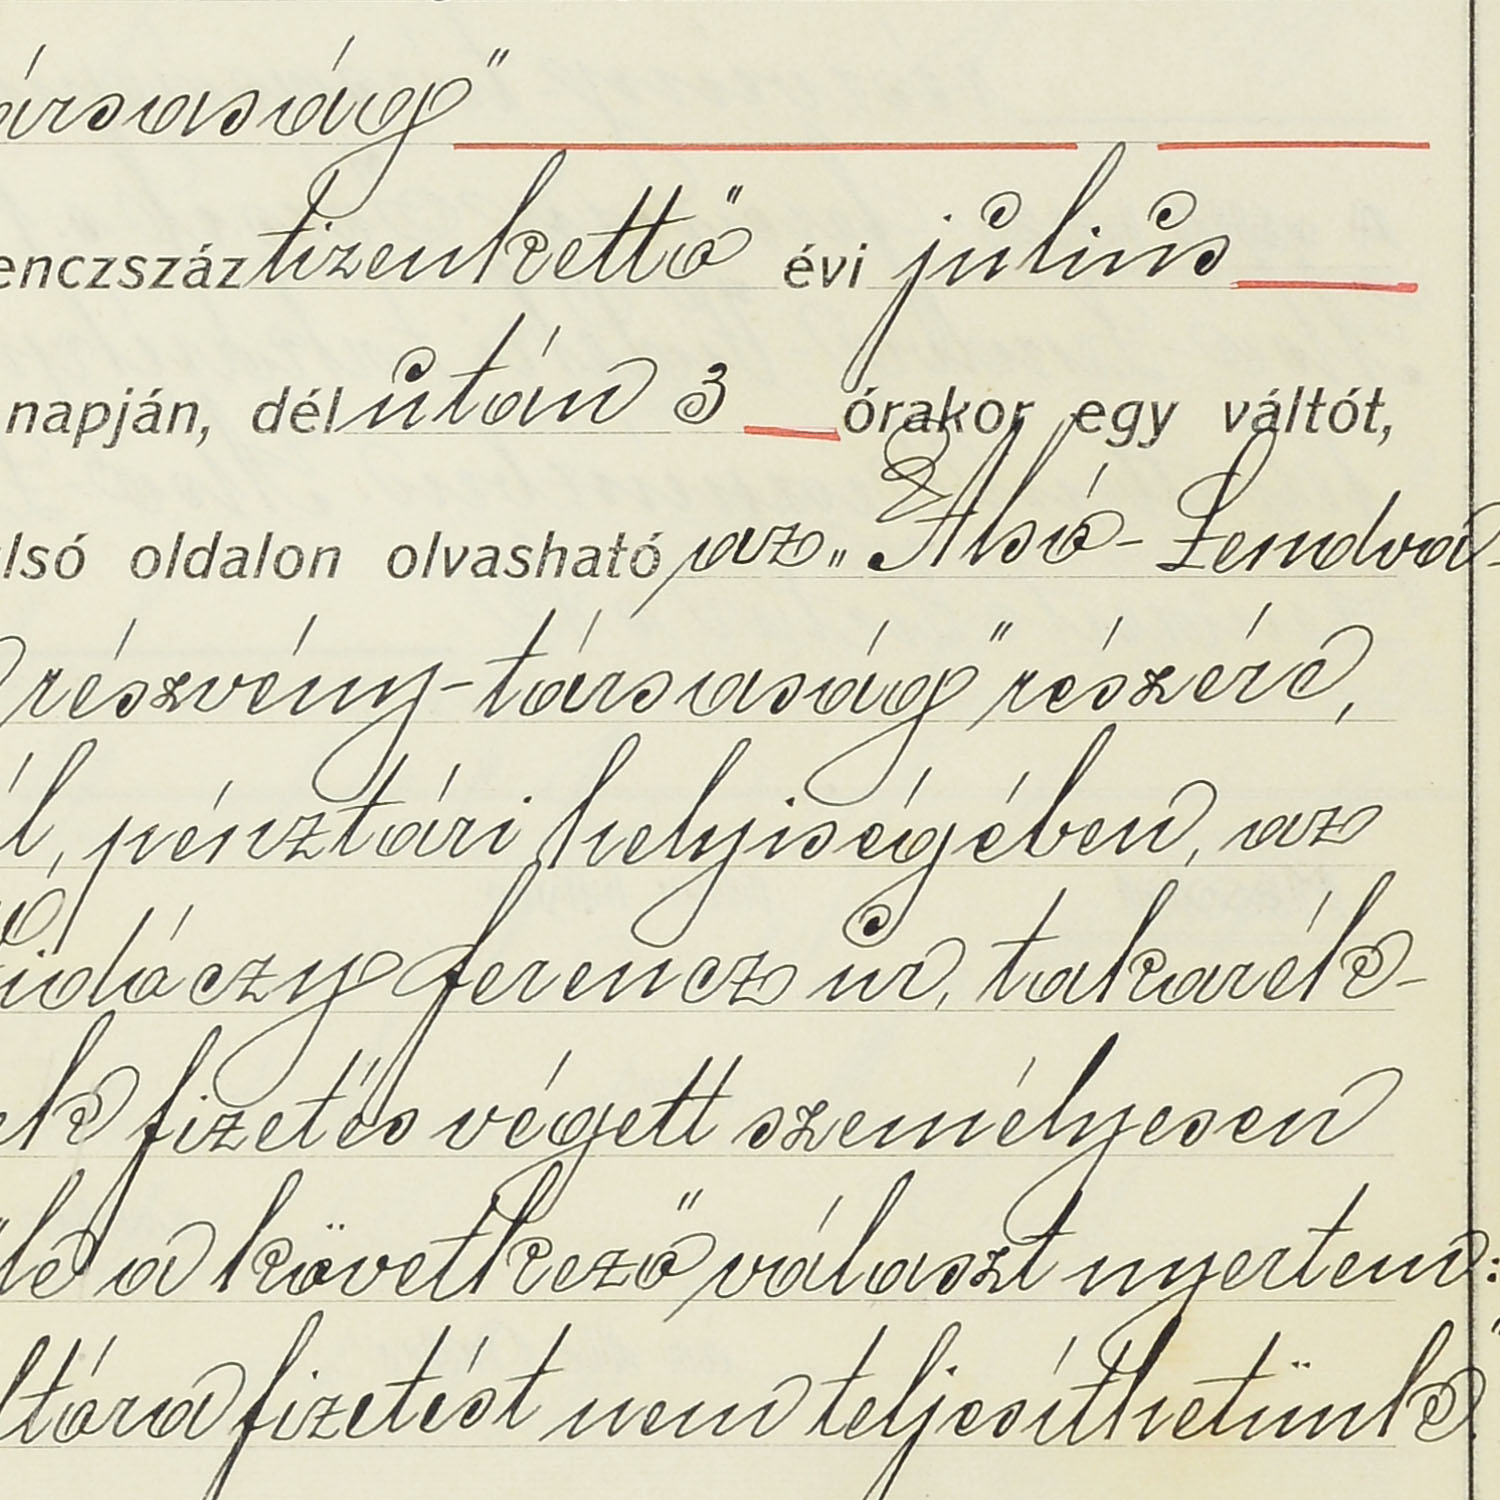 ársaság"
enczszáz tizenkettő évi július
napján, délután 3 órakor egy váltót,
lsó oldalon olvasható az „Alsó-Lendva-
részvény-társaság" részére,
l, pénztári helyiségében, az
Ferencz úr, takarék-
ek fizetés végett személyesen
le a következő választ nyertem:
ltóra fizetést nem teljesíthetünk."